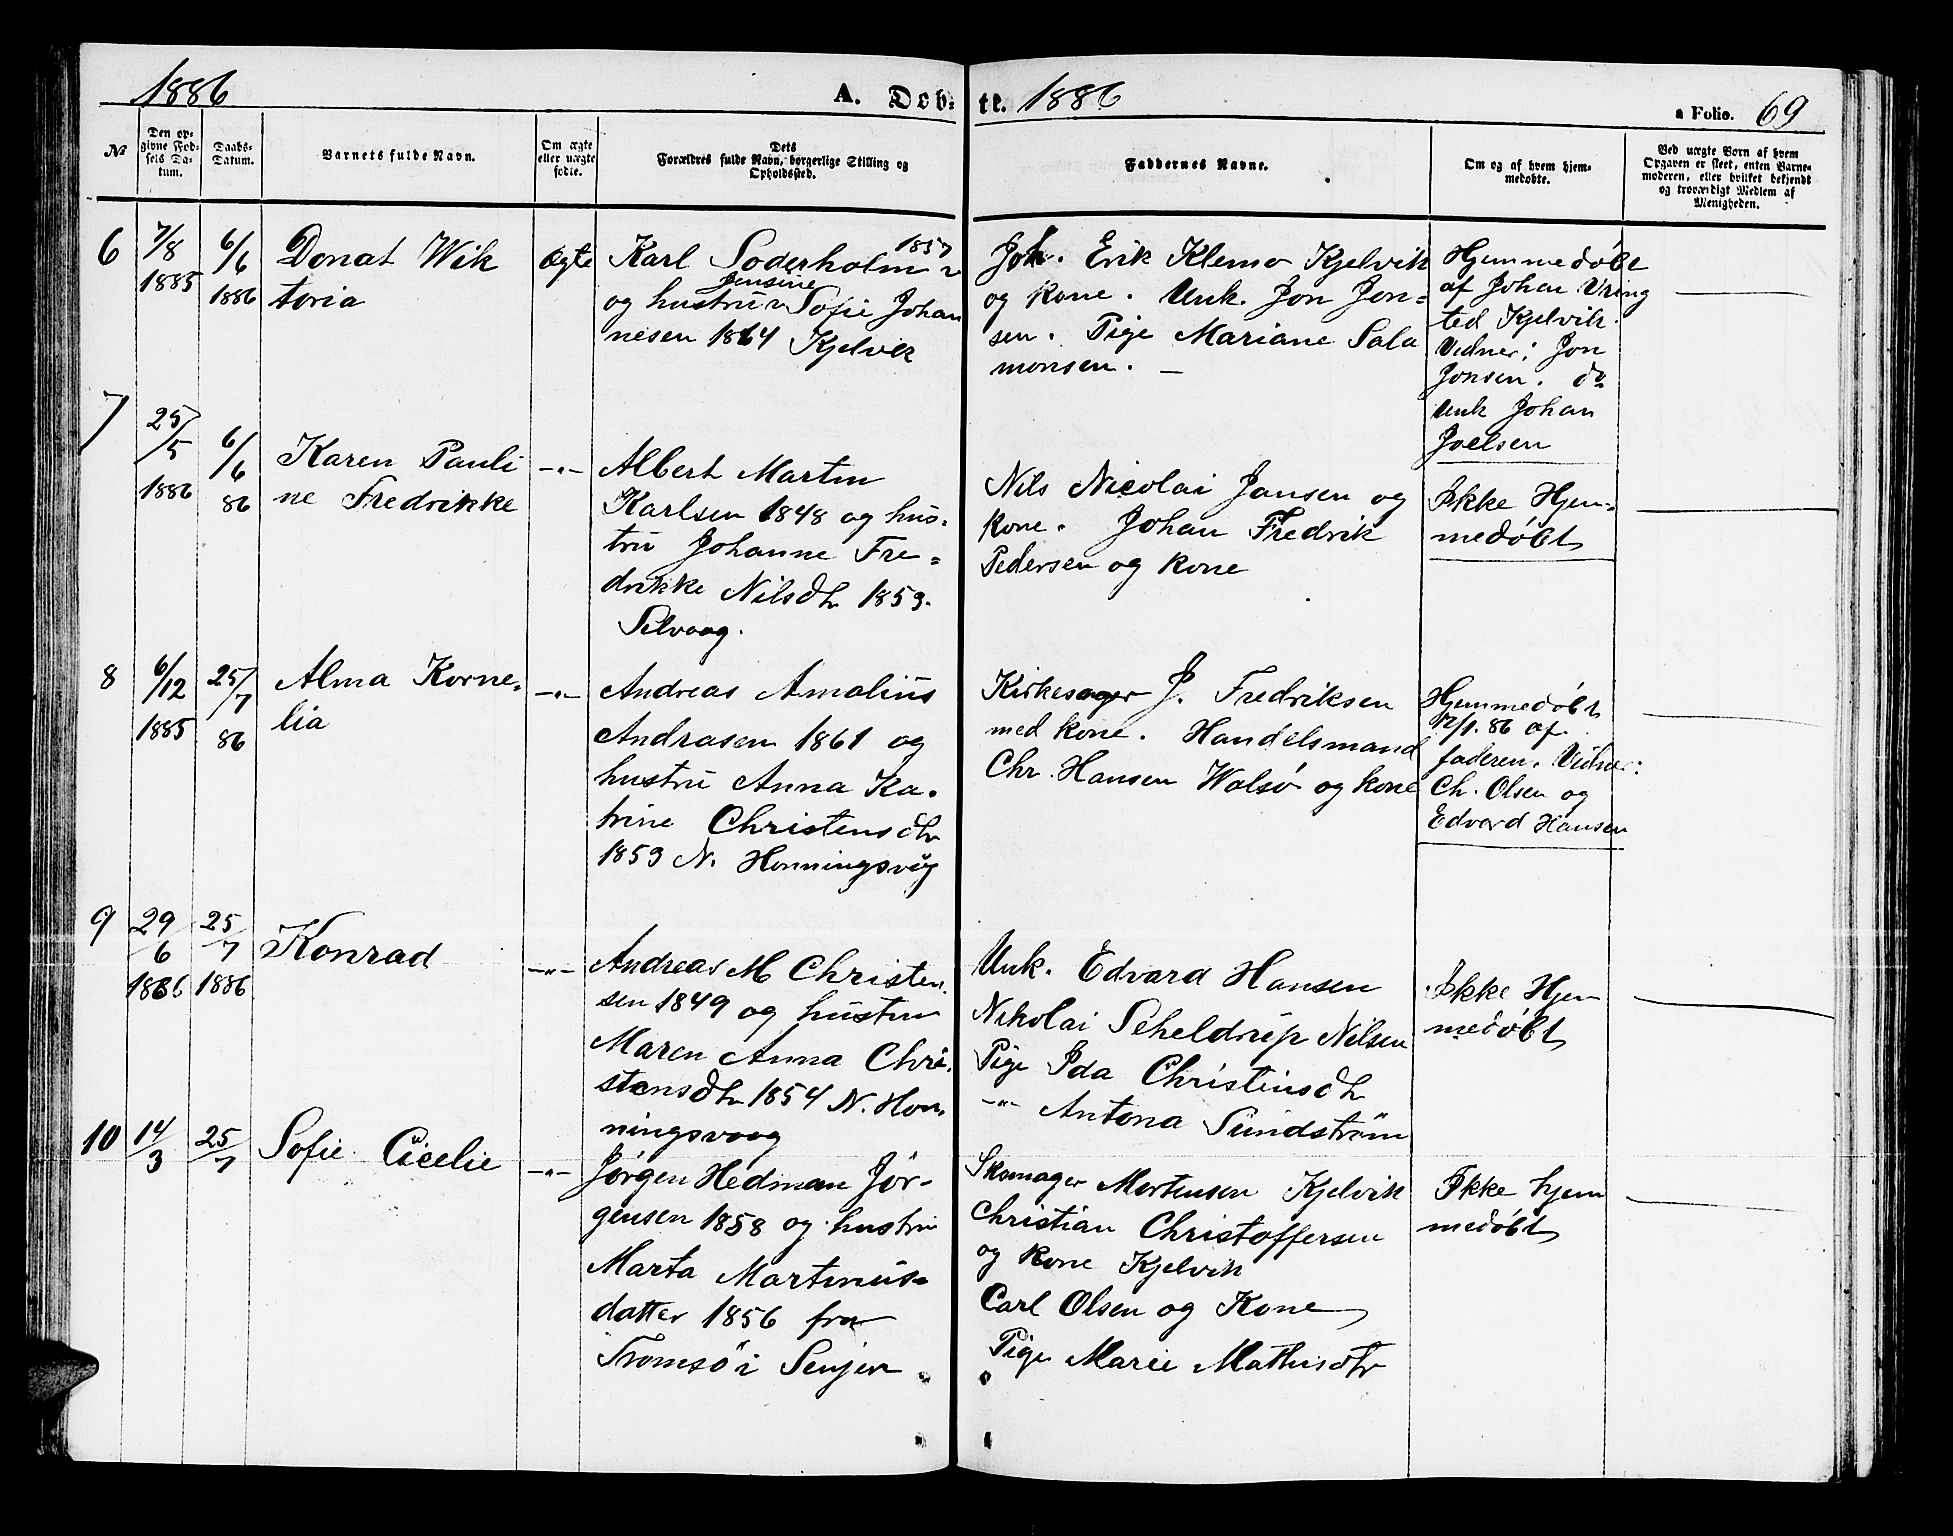 1886 A. Døb- te. 1886 a Folio. 69
№
Den op-
givne Fød-
sels Da-
tum.
Daabs-
Datum.
Barnets fulde Navn.
Om ægte
eller uægte
fødte.
Dets
Forældres fulde Navn, borgerlige Stilling og
Opholdssted.
Faddernes Navne.
Om og af hvem hjem-
medøbte.
Ved uægte Børn af hvem
Opgaven er skeet, enten Barne-
moderen, eller hvilket bekjendt
og troværdigt Medlem af
Menigheden.
6
7/8
1885
6/6
1886
Donat Wik
toria
ægte
Karl Soderholm 1857
og hustru Jensine Sofie Johan
nesen 1864 Kjelvik
Joh. Erik Klemo Kjelvik
og kone. Unk. Jon Jon-
sen. Pige Mariane Sala
monsen. —
Hjemmedøbt
af Johan Vring
ted Kjelvik.
Vidner: Jon
Jonsen. do
Unk Johan
Joelsen
7
25/5
1886
6/6
86
Karen Pauli
ne Fredrikke
—„—
Albert Martin
Karlsen 1848 og hus-
tru Johanne Fre-
drikke Nilsdtr 1853.
Selvaag.
Nils Nicolai Jansen og
kone. Johan Fredrik
Pedersen og kone
Ikke Hjem-
medøbt
8
6/12
1885
25/7
86
Alma Korne-
lia
—„—
Andreas Amalius
Andrasen 1861 og
hustru Anna Ka-
trine Christensdtr
1853 N. Honningsvåg
Kirkesanger J. Fredriksen
med kone. Handelsmand
Chr. Hansen Walsø og kone
Hjemmedøbt
12/1. 86 af
faderen. Vidner:
Ch. Olsen og
Edvard Hansen
9
29/6
1886
25/7
1886
Konrad
—„—
Andreas M Christen
sen 1849 og hustru
Maren Anna Chri-
stensdtr 1854 N. Hon
ningsvaag
Unk. Edvard Hansen
Nikolai Scheldrup Nilsen
Pige Ida Christensdtr
—„— Antona Sundström
Ikke Hjem
medøbt
10
14/3
25/7
Sofie Cicelie
—„—
Jørgen Hedman Jør-
gensen 1858 og hustru
Marta Martinus-
datter 1856 fra
Tromsö i Senjen
Skomager Mortensen Kjelvik
Christian Christoffersen
og kone Kjelvik
Carl Olsen og Kone
Pige Marie Mathisdtr
Ikke hjem
medøbt